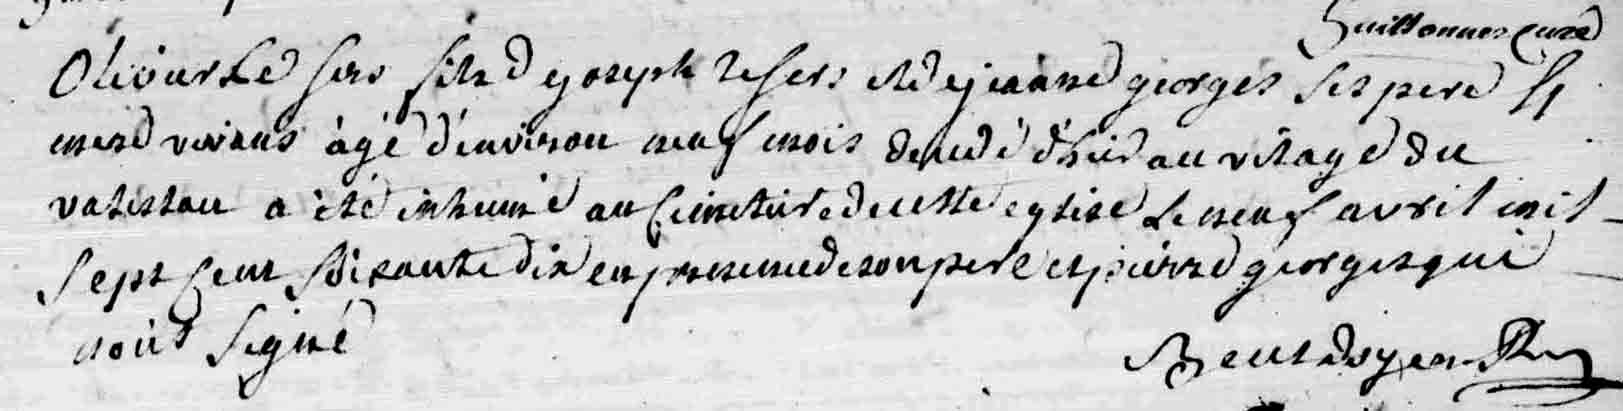 Guillonnes curé
Olivier Le fers fils de joseph le fers et de jeanne georges ses pere et
mere vivans âgé d'environ neuf mois décedé d'hier au vilage du
a été inhumé au cimetiere de cette eglise le neuf avril mil
sept cent soixante dix en presence de son pere et pierre georges qui
n'ont signé